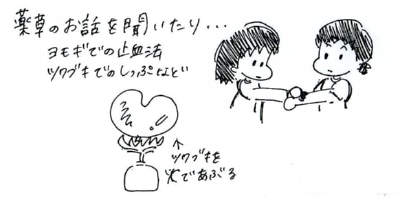 薬草のお話を聞いたり・・・
ヨモギでの止血法
ツワブキでのしっぷなど
↑ツワブキを
火であぶる